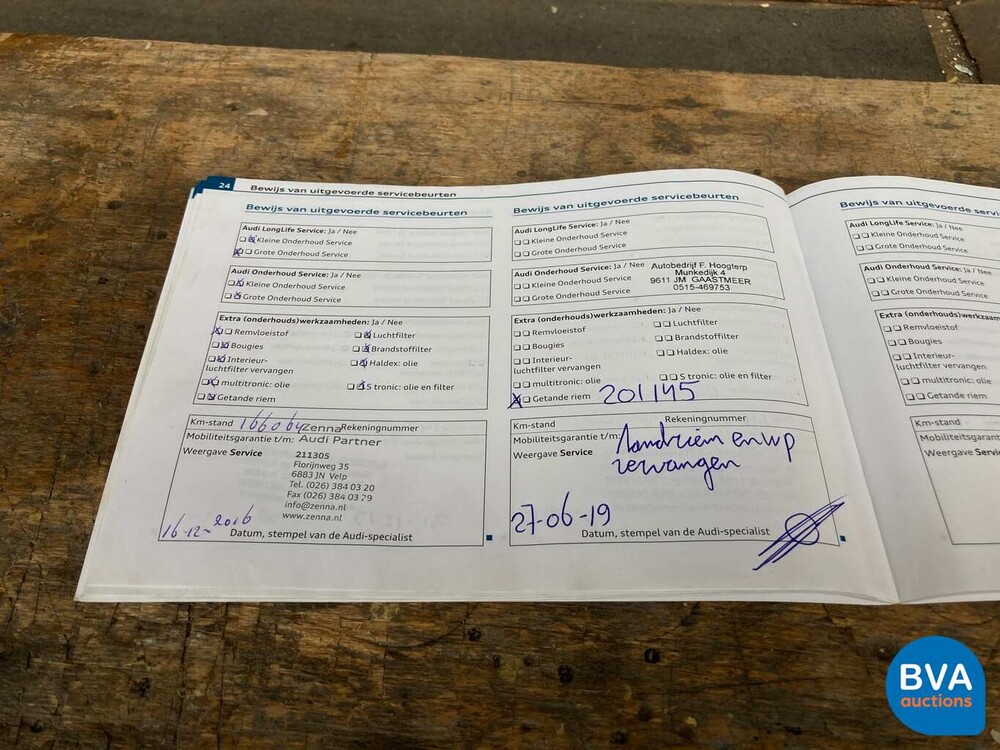 24 Bewijs van uitgevoerde servicebeurten
Bewijs van uitgevoerde servicebeurten
Audi LongLife Service: Ja / Nee
Kleine Onderhoud Service
Grote Onderhoud Service
Audi Onderhoud Service: Ja / Nee
Kleine Onderhoud Service
Grote Onderhoud Service
Extra (onderhouds)werkzaamheden: Ja / Nee
Remvloeistof Luchtfilter
Bougies Brandstoffilter
Interieur- Haldex: olie
luchtfilter vervangen
multitronic: olie S tronic: olie en filter
Getande riem
Km-stand 166064 zenna Rekeningnummer
Mobiliteitsgarantie t/m: Audi Partner
Weergave Service 211305
Florijnweg 35
6883 JN Velp
Tel. (026) 384 03 20
Fax (026) 384 03 29
info@zenna.nl
www.zenna.nl
16-12-2016
Datum, stempel van de Audi-specialist
Bewijs van uitgevoerde servicebeurten
Audi LongLife Service: Ja / Nee
Kleine Onderhoud Service
Grote Onderhoud Service
Audi Onderhoud Service: Ja / Nee
Kleine Onderhoud Service
Grote Onderhoud Service
Autobedrijf F. Hoogterp
Munkedijk 4
8611 JM GAASTMEER
0515-469753
Extra (onderhouds)werkzaamheden: Ja / Nee
Remvloeistof Luchtfilter
Bougies Brandstoffilter
Interieur- Haldex: olie
luchtfilter vervangen
multitronic: olie S tronic: olie en filter
Getande riem 201145
Km-stand Rekeningnummer
Mobiliteitsgarantie t/m: tandriem en wp
Weergave Service vervangen
27-06-19
Datum, stempel van de Audi-specialist
Bewijs van uitgevoerde servi
Audi LongLife Service: Ja / Nee
Kleine Onderhoud Service
Grote Onderhoud Service
Audi Onderhoud Service: Ja / Nee
Kleine Onderhoud Service
Grote Onderhoud Service
Extra (onderhouds)werkzaam
Remvloeistof
Bougies
Interieur-
luchtfilter vervangen
multitronic: olie
Getande riem
Km-stand
Mobiliteitsgarant
Weergave Servic
BVA
auctions